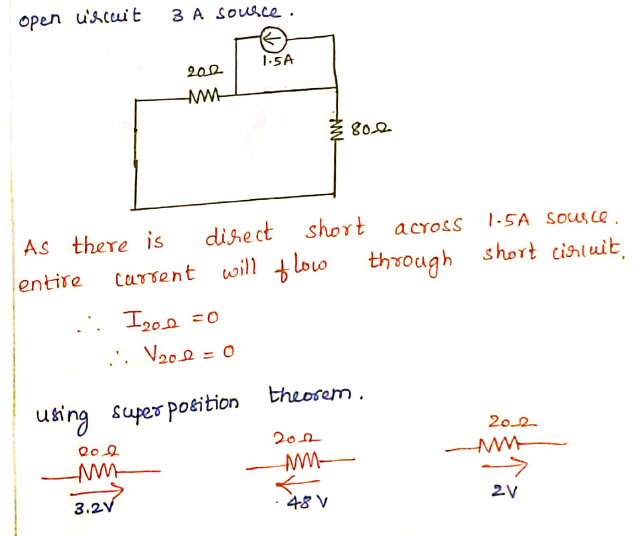 open circuit 3 A source.
1.5A
20Ω
80Ω
As there is direct short across 1.5A source.
entire current will flow through short circuit,
∴ I20Ω = 0
∴ V20Ω = 0
using superposition theorem.
20Ω
3.2V
20Ω
48 V
20Ω
2V